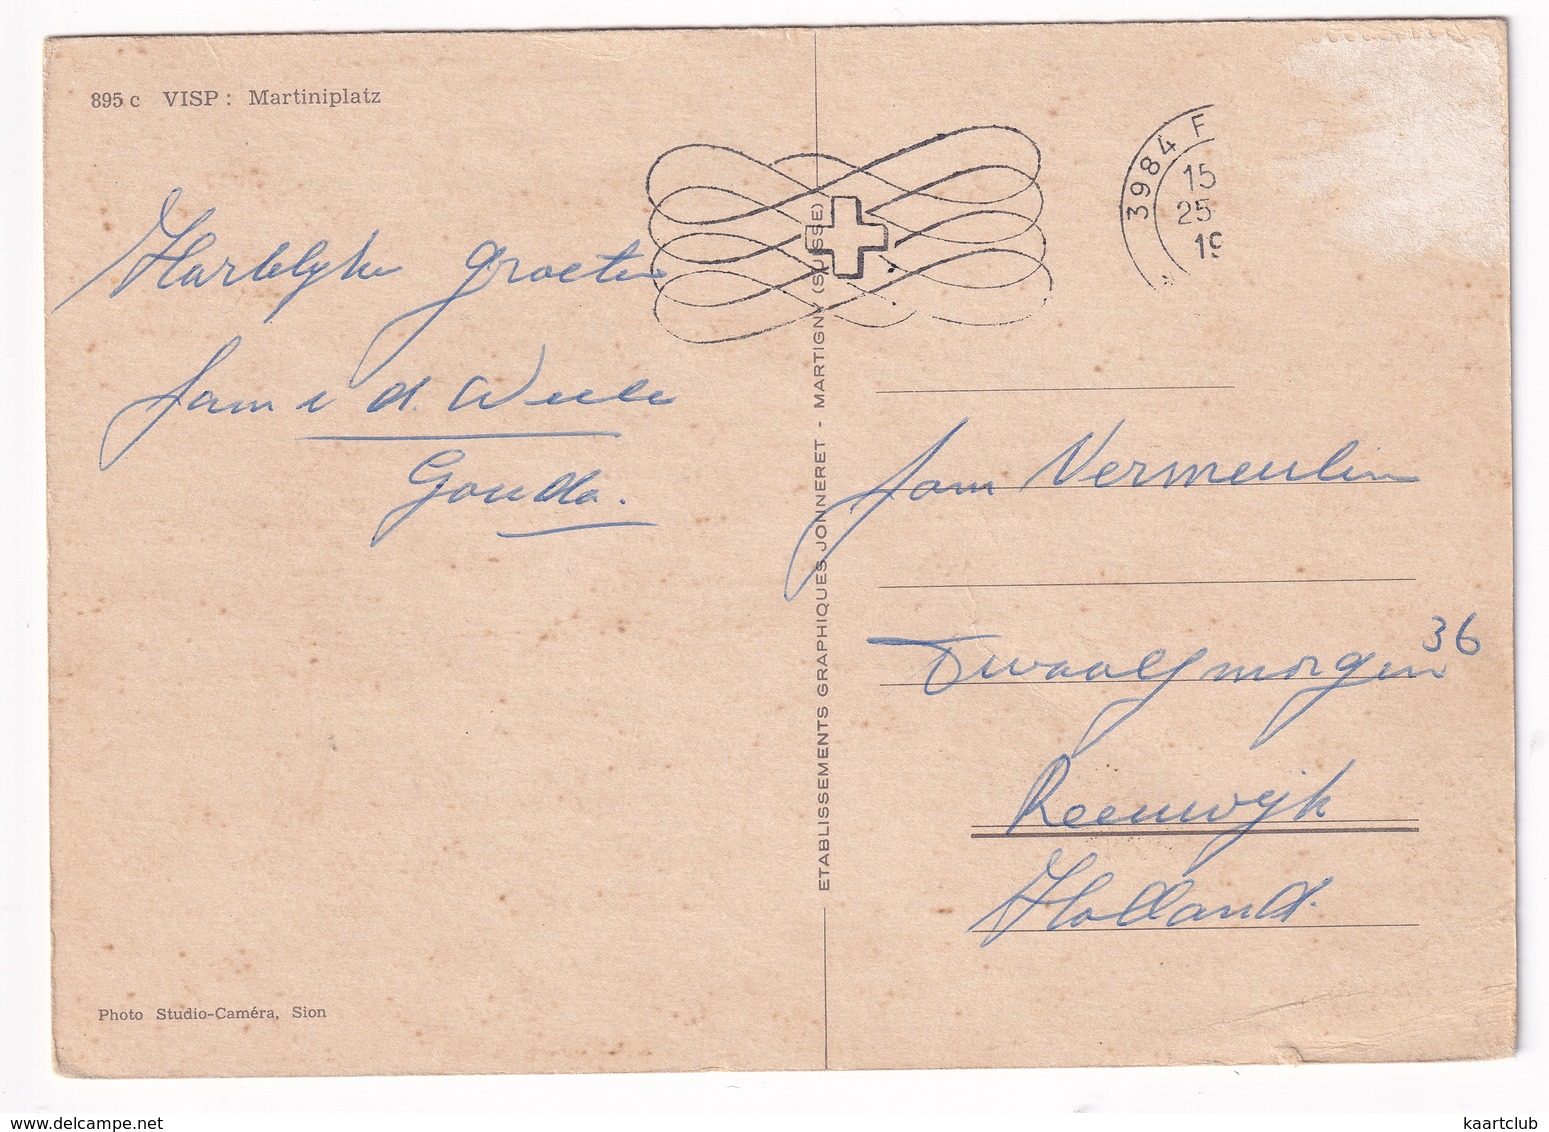 895 c VISP : Martiniplatz
3984 F
15
25-
19
Hartelijke groeten
Fam
d. Weele
Gouda.
ETABLISSEMENTS GRAPHIQUES JONNERET - MARTIGNY (SUISSE)
Fam Vermeulen
Twaalfmorgen 36
Reeuwijk
Holland.
Photo Studio-Caméra, Sion
delcampe.net
kaartclub